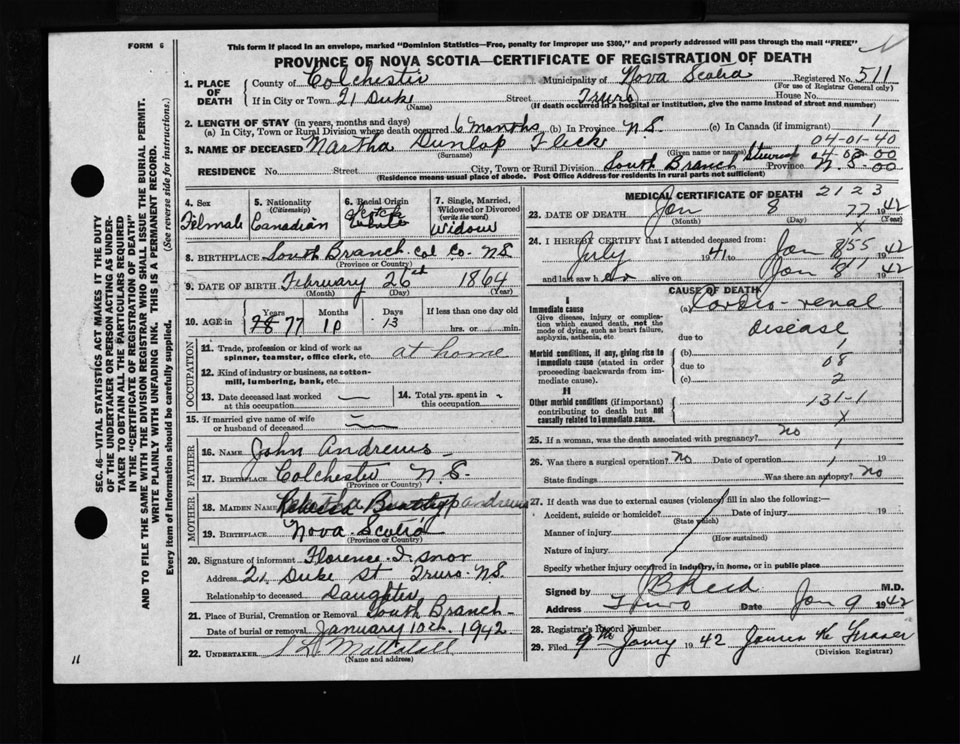 FORM 6
This form if placed in an envelope, marked "Dominion Statistics—Free, penalty for improper use $300," and properly addressed will pass through the mail "FREE"
PROVINCE OF NOVA SCOTIA—CERTIFICATE OF REGISTRATION OF DEATH
1. PLACE OF DEATH County of Colchester Municipality of Nova Scotia Registered No. 511
(For use of Registrar General only)
If in City or Town 21 Duke Street Truro House No.
(Name) (If death occurred in a hospital or institution, give the name instead of street and number)
2. LENGTH OF STAY (in years, months and days)
(a) In City, Town or Rural Division where death occurred 6 months (b) In Province N.S. (c) In Canada (if immigrant) 1
04-01-40
3. NAME OF DECEASED Martha Dunlop Fleck
(Surname) (Given name or names) 04 08 00
RESIDENCE No. Street City, Town or Rural Division South Branch Province N.S. 00
(Residence means usual place of abode. Post Office Address for residents in rural parts not sufficient)
4. Sex Felmale
5. Nationality (Citizenship) Canadian
6. Racial Origin Scotch White
7. Single, Married, Widowed or Divorced (write the word) Widow
8. BIRTHPLACE South Branch Col Co. N.S
(Province or Country)
9. DATE OF BIRTH February 26 1864
(Month) (Day) (Year)
10. AGE in Years 78 77 Months 10 Days 13 If less than one day old hrs. or min.
OCCUPATION
11. Trade, profession or kind of work as spinner, teamster, office clerk, etc. at home
12. Kind of industry or business, as cotton-mill, lumbering, bank, etc.
13. Date deceased last worked at this occupation —
14. Total yrs. spent in this occupation
15. If married give name of wife or husband of deceased —
FATHER
16. NAME John Andrews
17. BIRTHPLACE Colchester N.S.
(Province or Country)
MOTHER
18. MAIDEN NAME Andrews
19. BIRTHPLACE Nova Scotia
(Province or Country)
20. Signature of informant Florence I. Snor
Address 21 Duke St Truro N.S.
Relationship to deceased Daughter
21. Place of Burial, Cremation or Removal South Branch
Date of burial or removal January 10th 1942
22. UNDERTAKER
(Name and address)
MEDICAL CERTIFICATE OF DEATH 2123
23. DATE OF DEATH Jan 8 77 1942
(Month) (Day) (Year)
X
24. I HEREBY CERTIFY that I attended deceased from: 855
July 1941 to Jan 8 1942
and last saw her alive on Jan 8 1942
CAUSE OF DEATH
I
Immediate cause
Give disease, injury or complication which caused death, not the mode of dying, such as heart failure, asphyxia, asthenia, etc.
(a) Cardio-renal disease
due to 1
Morbid conditions, if any, giving rise to immediate cause (stated in order proceeding backwards from immediate cause).
(b) 08
due to
(c) 2
II
Other morbid conditions (if important) contributing to death but not causally related to immediate cause.
131-1
X
25. If a woman, was the death associated with pregnancy? no
26. Was there a surgical operation? No Date of operation 19
State findings Was there an autopsy? No
27. If death was due to external causes (violence) fill in also the following:—
Accident, suicide or homicide? Date of injury 19
(State which)
Manner of injury
(How sustained)
Nature of injury
Specify whether injury occurred in industry, in home, or in public place
Signed by J B Reid M.D.
Address Truro Date Jan 9 1942
28. Registrar's Record Number
29. Filed 9th Jany 1942 James K Fraser
(Division Registrar)
SEC. 46—VITAL STATISTICS ACT MAKES IT THE DUTY
OF THE UNDERTAKER OR PERSON ACTING AS UNDER-
TAKER TO OBTAIN ALL THE PARTICULARS REQUIRED
IN THE "CERTIFICATE OF REGISTRATION OF DEATH"
AND TO FILE THE SAME WITH THE DIVISION REGISTRAR WHO SHALL ISSUE THE BURIAL PERMIT.
WRITE PLAINLY WITH UNFADING INK. THIS IS A PERMANENT RECORD.
Every item of information should be carefully supplied. (See reverse side for instructions.)
11